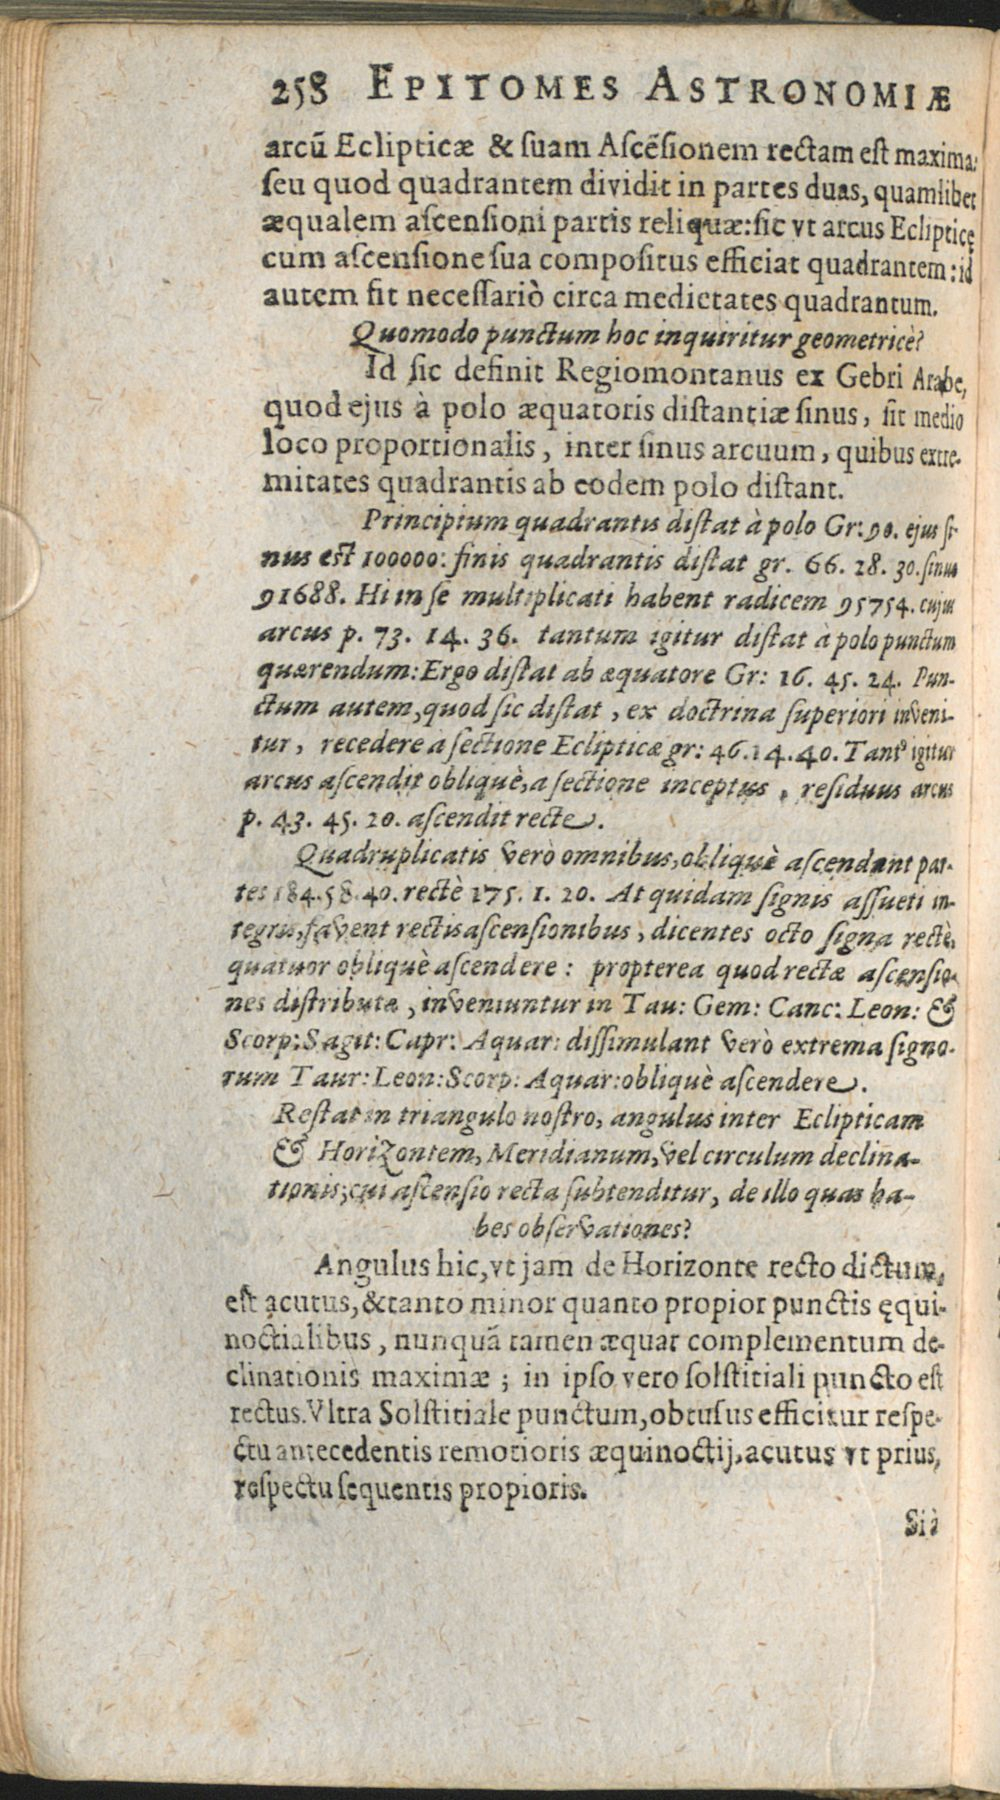 258 EPITOMES ASTRONOMIÆ
arcũ Eclipticæ & ſuam Aſcẽſionem rectam eſt maxima:
ſeu quod quadrantem dividit in partes duas, quamlibet
æqualem aſcenſioni partis reliquæ: ſic vt arcus Eclipticę
cum aſcenſione ſua compoſitus efficiat quadrantem: id
autem fit neceſſariò circa medietates quadrantum.
Quomodo punctum hoc inquiritur geometricè?
Id ſic definit Regiomontanus ex Gebri Arabe,
quod ejus à polo æquatoris diſtantiæ ſinus, ſit medio
loco proportionalis, inter ſinus arcuum, quibus extre-
mitates quadrantis ab eodem polo diſtant.
Principium quadrantis diſtat à polo Gr: 90. ejus ſi-
nus eſt 100000: finis quadrantis diſtat gr. 66. 28. 30. ſinus
91688. Hi in ſe multiplicati habent radicem 95754. cujus
arcus p. 73. 14. 36. tantum igitur diſtat à polo punctum
quærendum: Ergo diſtat ab æquatore Gr: 16. 45. 24. Pun-
ctum autem, quod ſic diſtat, ex doctrina ſuperiori inveni-
tur, recedere à ſectione Eclipticæ gr: 46. 14. 40. Tantꝰ igitur
arcus aſcendit obliquè, a ſectione inceptus, reſiduus arcus
p. 43. 45. 20. aſcendit recte.
Quadruplicatis verò omnibus, obliquè aſcendent par-
tes 184. 58. 40. rectè 175. 1. 20. At quidam ſignis aſſueti in-
tegris, favent rectis aſcenſionibus, dicentes octo ſigna rectè,
quatuor obliquè aſcendere: propterea quod rectæ aſcenſio-
nes diſtributæ, inveniuntur in Tau: Gem: Canc: Leon: &
Scorp: Sagit: Capr: Aquar: diſſimulant verò extrema ſigno-
rum Taur: Leon: Scorp: Aquar: obliquè aſcendere.
Reſtat in triangulo noſtro, angulus inter Eclipticam
& Horizontem, Meridianum, vel circulum declina-
tionis; cui aſcenſio recta ſubtenditur, de illo quas ha-
bes obſervationes?
Angulus hic, vt jam de Horizonte recto dictum,
eſt acutus, & tanto minor quanto propior punctis ęqui-
noctialibus, nunquã tamen æquat complementum de-
clinationis maximæ; in ipſo vero ſolſtitiali puncto eſt
rectus. Vltra Solſtitiale punctum, obtuſus efficitur reſpe-
ctu antecedentis remotioris æquinoctij, acutus vt prius,
reſpectu ſequentis propioris.
Si à